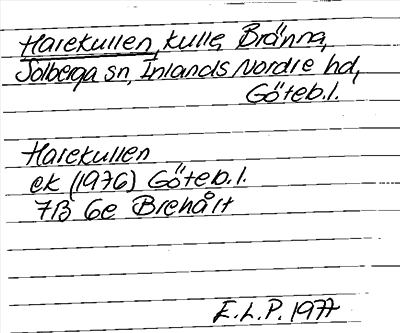 Harekullen, kulle, Bränna,
Solberga sn, Inlands Nordre hd,
Göteb.l.
Harekullen
ek (1976) Göteb.l.
7B 6e Brehålt
E.L.P. 1977